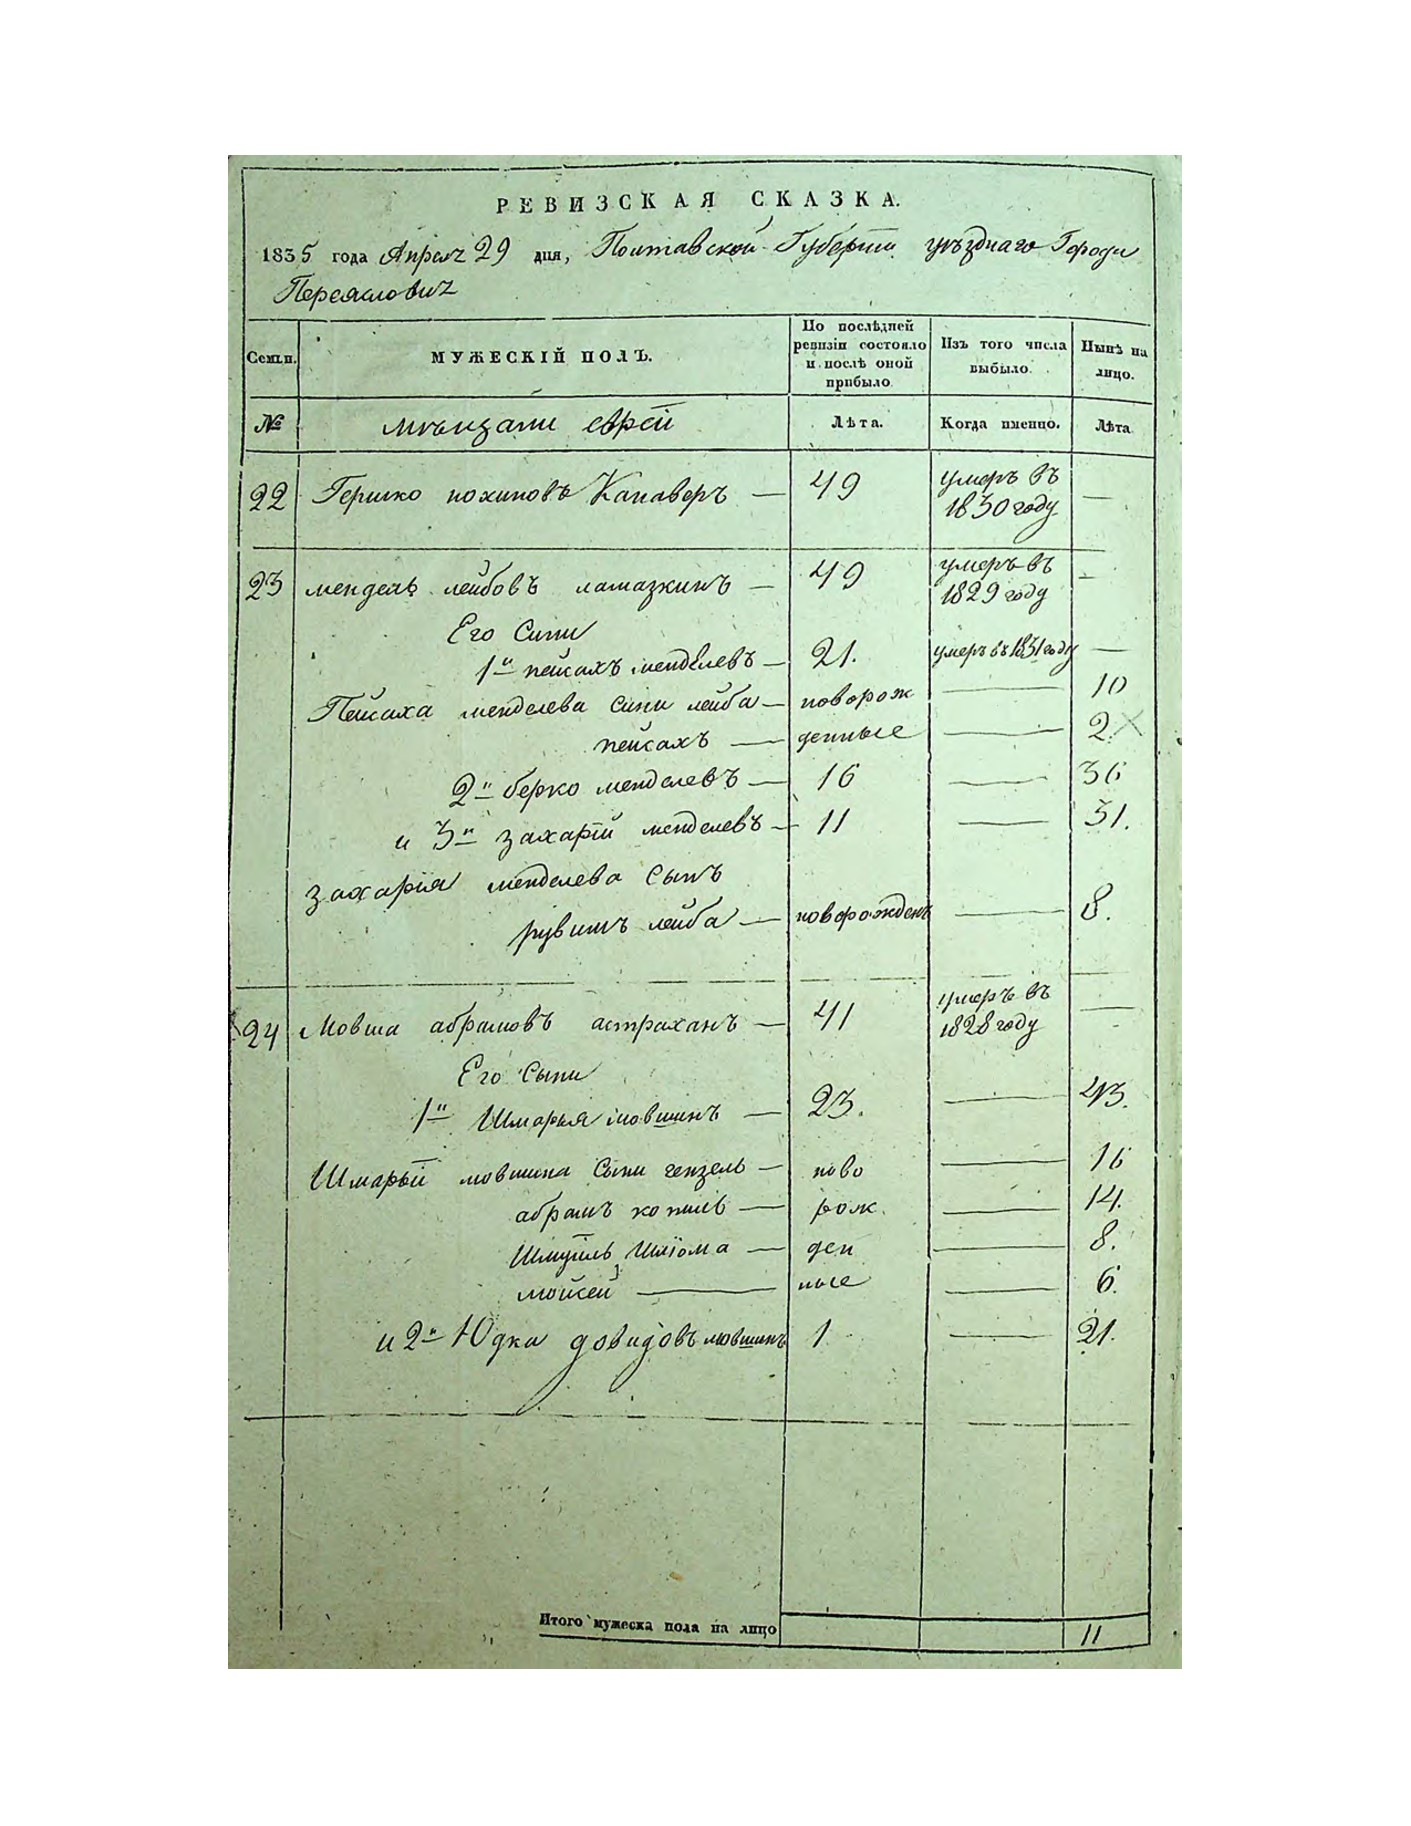 РЕВИЗСКАЯ СКАЗКА.
1835 года Апреля 29 дня, Полтавской Губерніи уѣзднаго Города
Переяславля
Семьи. МУЖЕСКІЙ ПОЛЪ. По послѣдней ревизіи состояло и послѣ оной прибыло Изъ того числа выбыло. Нынѣ на лицо.
№ мѣщани еврей Лѣта. Когда именно. Лѣта
22 Гершко нохимовъ Капаверъ — 49 умеръ въ 1830 году —
23 мендель лейбовъ ламазкинъ — 49 умеръ въ 1829 году —
Его Сини
1й пейсахъ менделевъ — 21. умеръ въ 1831 году —
Пейсаха менделева сини лейба — новорож — 10
пейсахъ — денные — 2
2й берко менделевъ — 16 — 36
и 3й захарій менделевъ — 11 — 31.
захарія менделева Сынъ
рувинъ лейба — новорожденъ — 8.
24 Мовша абрамовъ астраханъ — 41 умеръ въ 1828 году —
Его Сыни
1й Шмарья мовшинъ — 23. — 43.
Шмарьи мовшина Сыни гензель — ново — 16
абрамъ копиль — рож. — 14.
Шмуйль Шліома — ден — 8.
мойсей — ные — 6.
и 2й Юдка довидовъ мовшинъ 1 — 21.
Итого мужеска пола на лицо 11